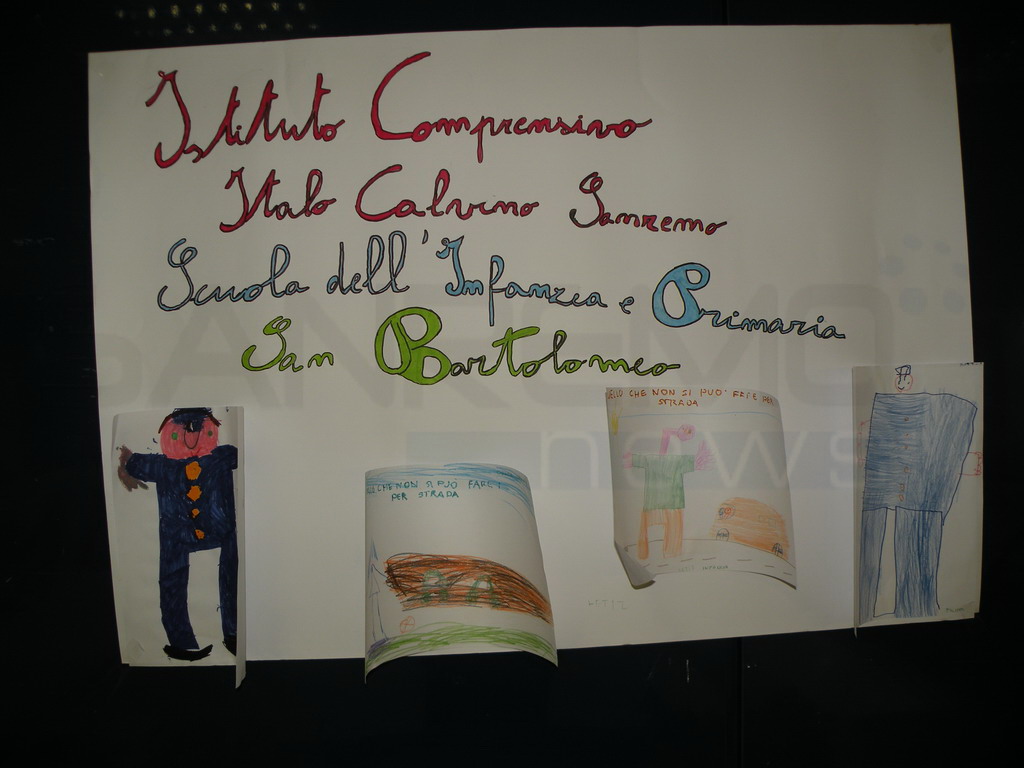 Istituto Comprensivo
Italo Calvino Sanremo
Scuola dell'Infanzia e Primaria
San Bartolomeo
SANREMO
news
CHE NON SI PUÒ FARE
PER STRADA
CHE NON SI PUO' FARE PER
STRADA